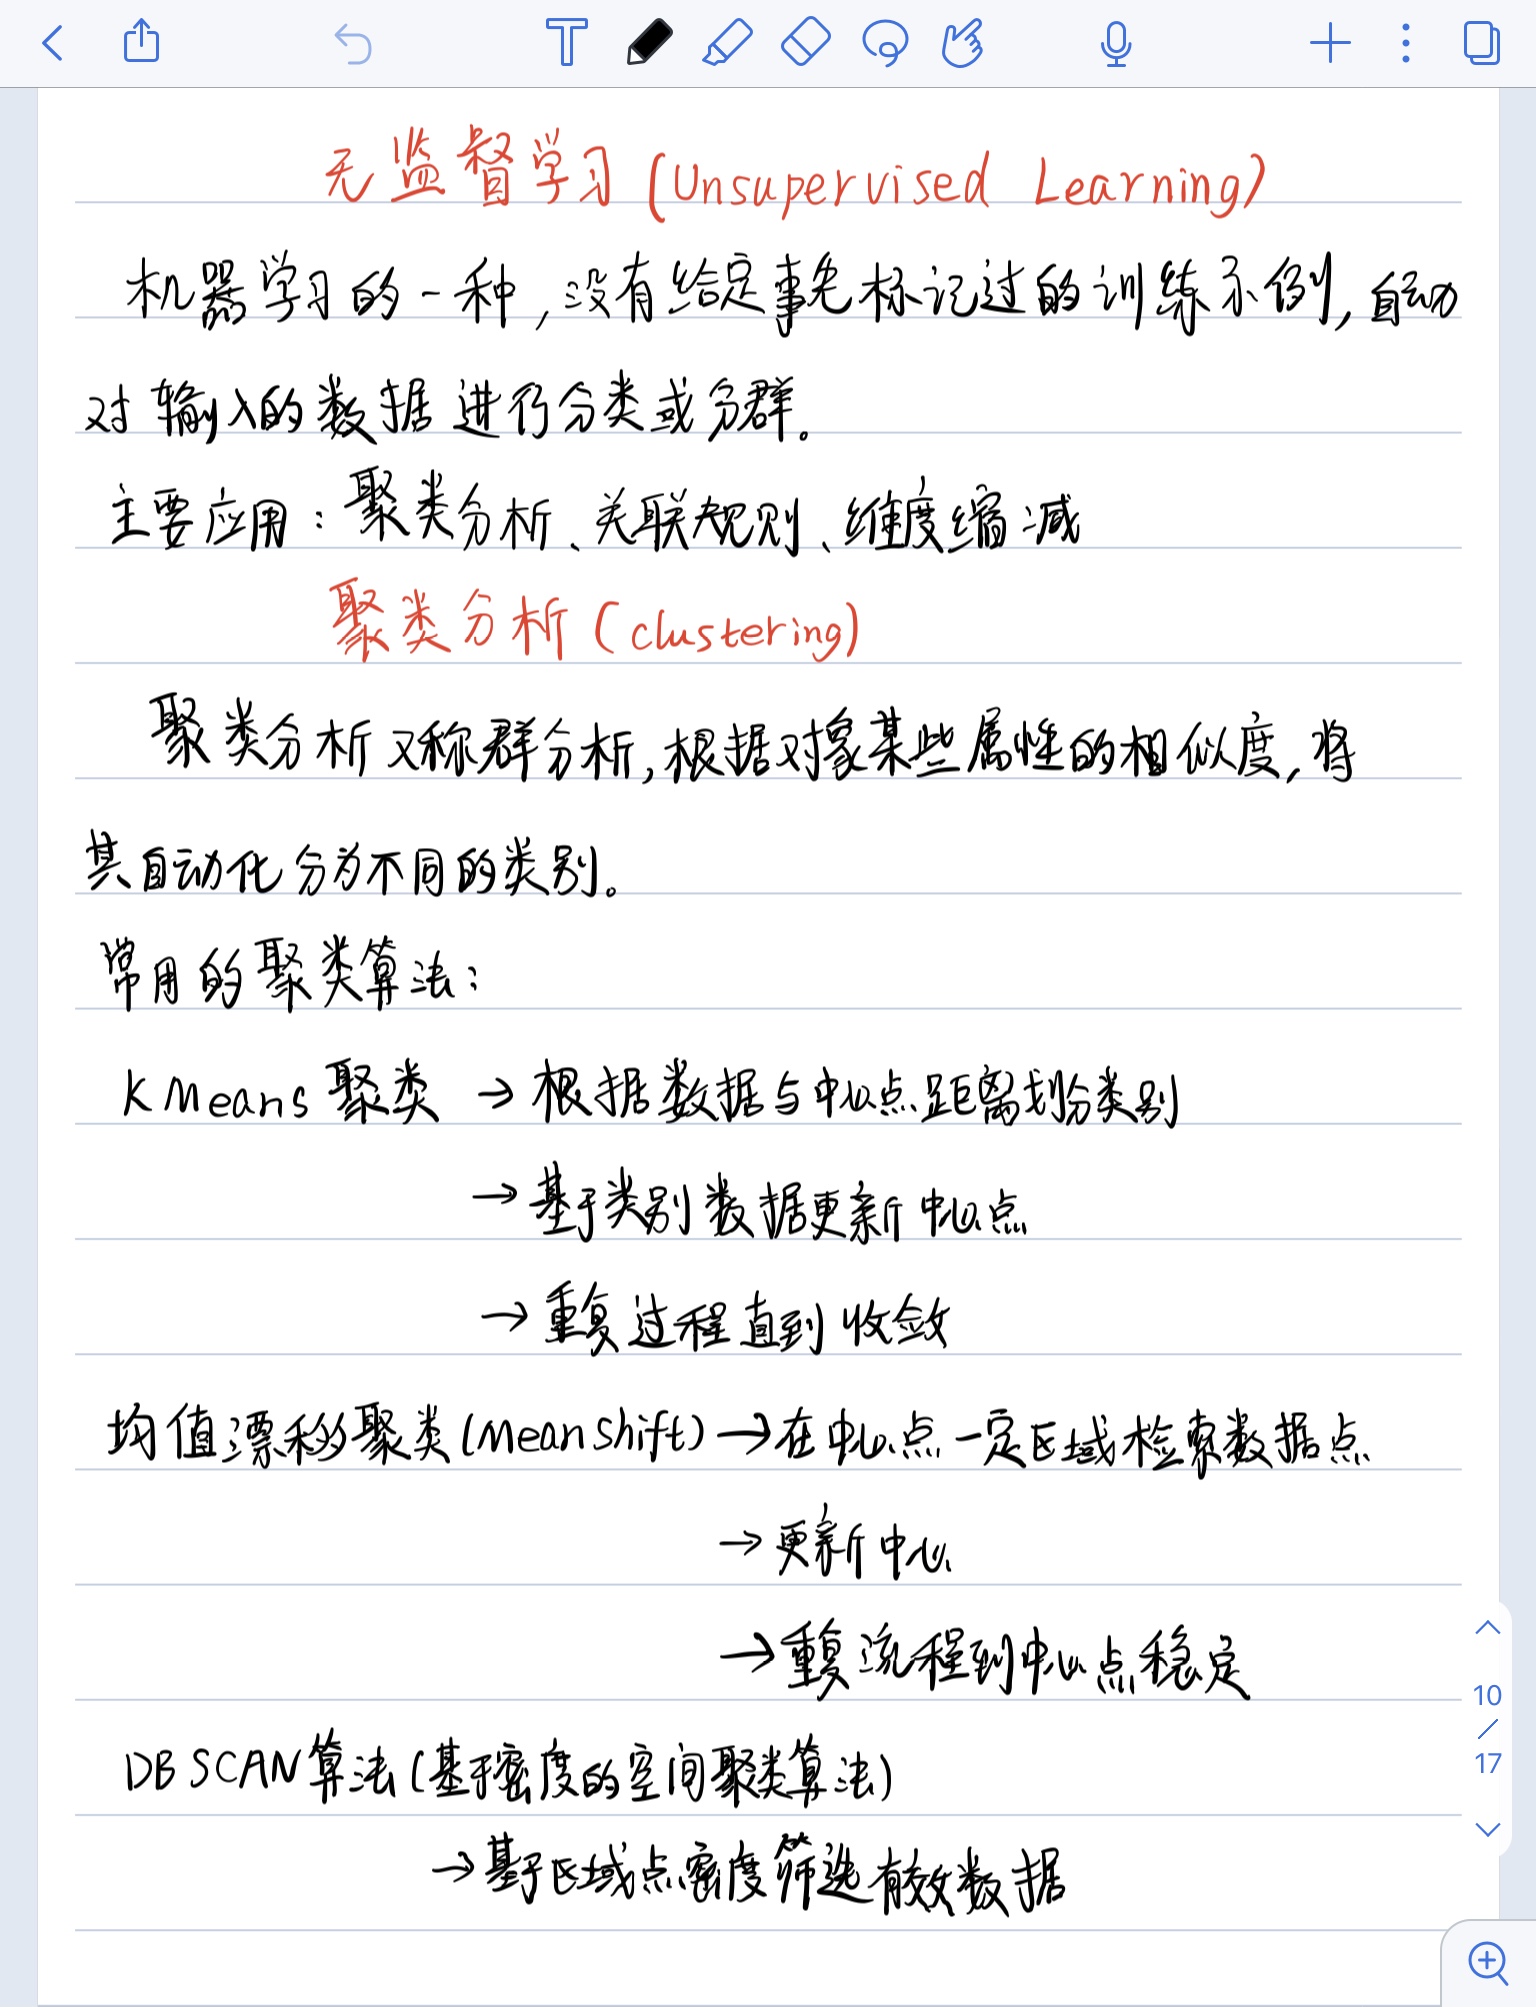 无监督学习(Unsupervised Learning)
机器学习的一种,没有给定事先标记过的训练示例,自动
对输入的数据进行分类或分群。
主要应用:聚类分析、关联规则、维度缩减
聚类分析(clustering)
聚类分析又称群分析,根据对象某些属性的相似度,将
其自动化分为不同的类别。
常用的聚类算法:
KMeans聚类 → 根据数据与中心点距离划分类别
→ 基于类别数据更新中心点
→ 重复过程直到收敛
均值漂移聚类(Meanshift) → 在中心点一定区域检索数据点
→ 更新中心
→ 重复流程到中心点稳定
DBSCAN算法(基于密度的空间聚类算法)
→ 基于区域点密度筛选有效数据
10
/
17